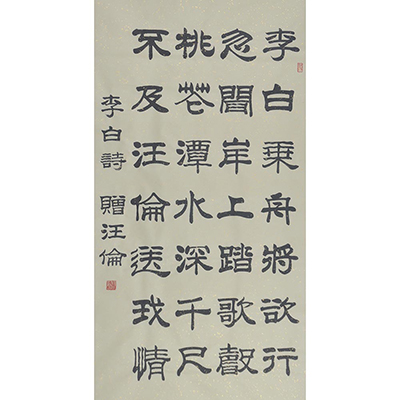 李白乘舟將欲行
忽聞岸上踏歌聲
桃花潭水深千尺
不及汪倫送我情
李白詩 贈汪倫